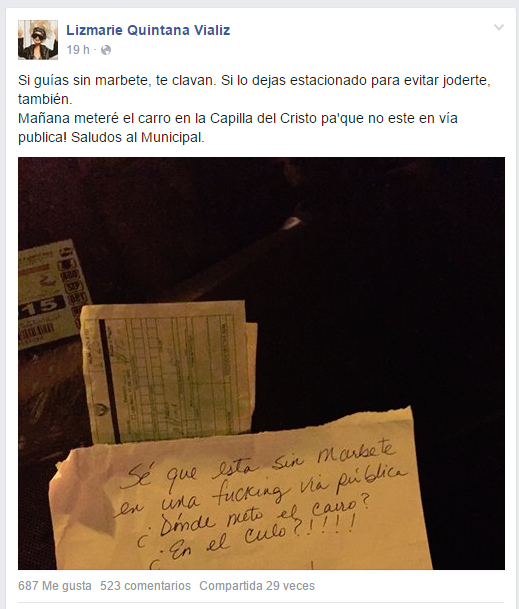 Lizmarie Quintana Vializ
19 h ·
Si guías sin marbete, te clavan. Si lo dejas estacionado para evitar joderte,
también.
Mañana meteré el carro en la Capilla del Cristo pa'que no este en vía
publica! Saludos al Municipal.
15
Sé que esta sin Marbete
en una fucking via pública
¿Dónde meto el carro?
¿En el culo?!!!!
687 Me gusta 523 comentarios Compartida 29 veces